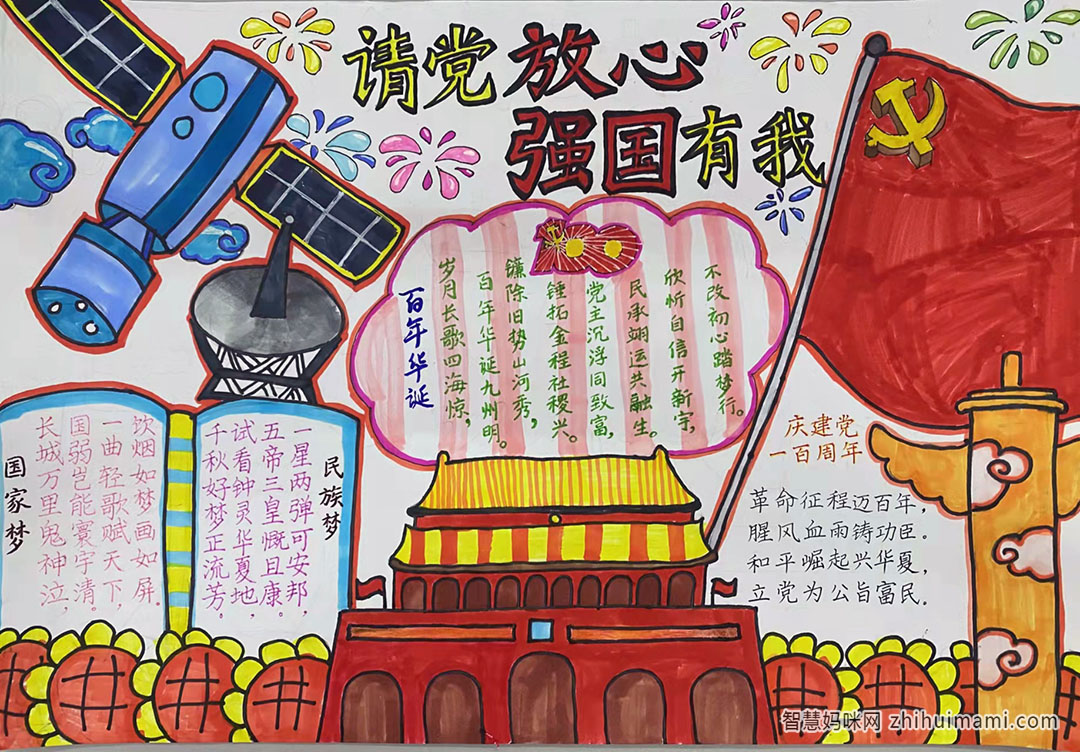 请党放心
强国有我
百年华诞
岁月长歌四海惊，
百年华诞九州明。
镰除旧势山河秀，
锤拓金程社稷兴。
党主沉浮同致富，
民承翊运共融生。
欣忻自信开新宇，
不改初心踏梦行。
国家梦
长城万里鬼神泣，
国弱岂能寰宇清。
一曲轻歌赋天下，
饮烟如梦画如屏.
民族梦
一星两弹可安邦，
五帝三皇慨且康。
试看钟灵华夏地，
千秋好梦正流芳。
庆建党
一百周年
革命征程迈百年，
腥风血雨铸功臣。
和平崛起兴华夏，
立党为公旨富民.
智慧妈咪网 zhihuimami.com